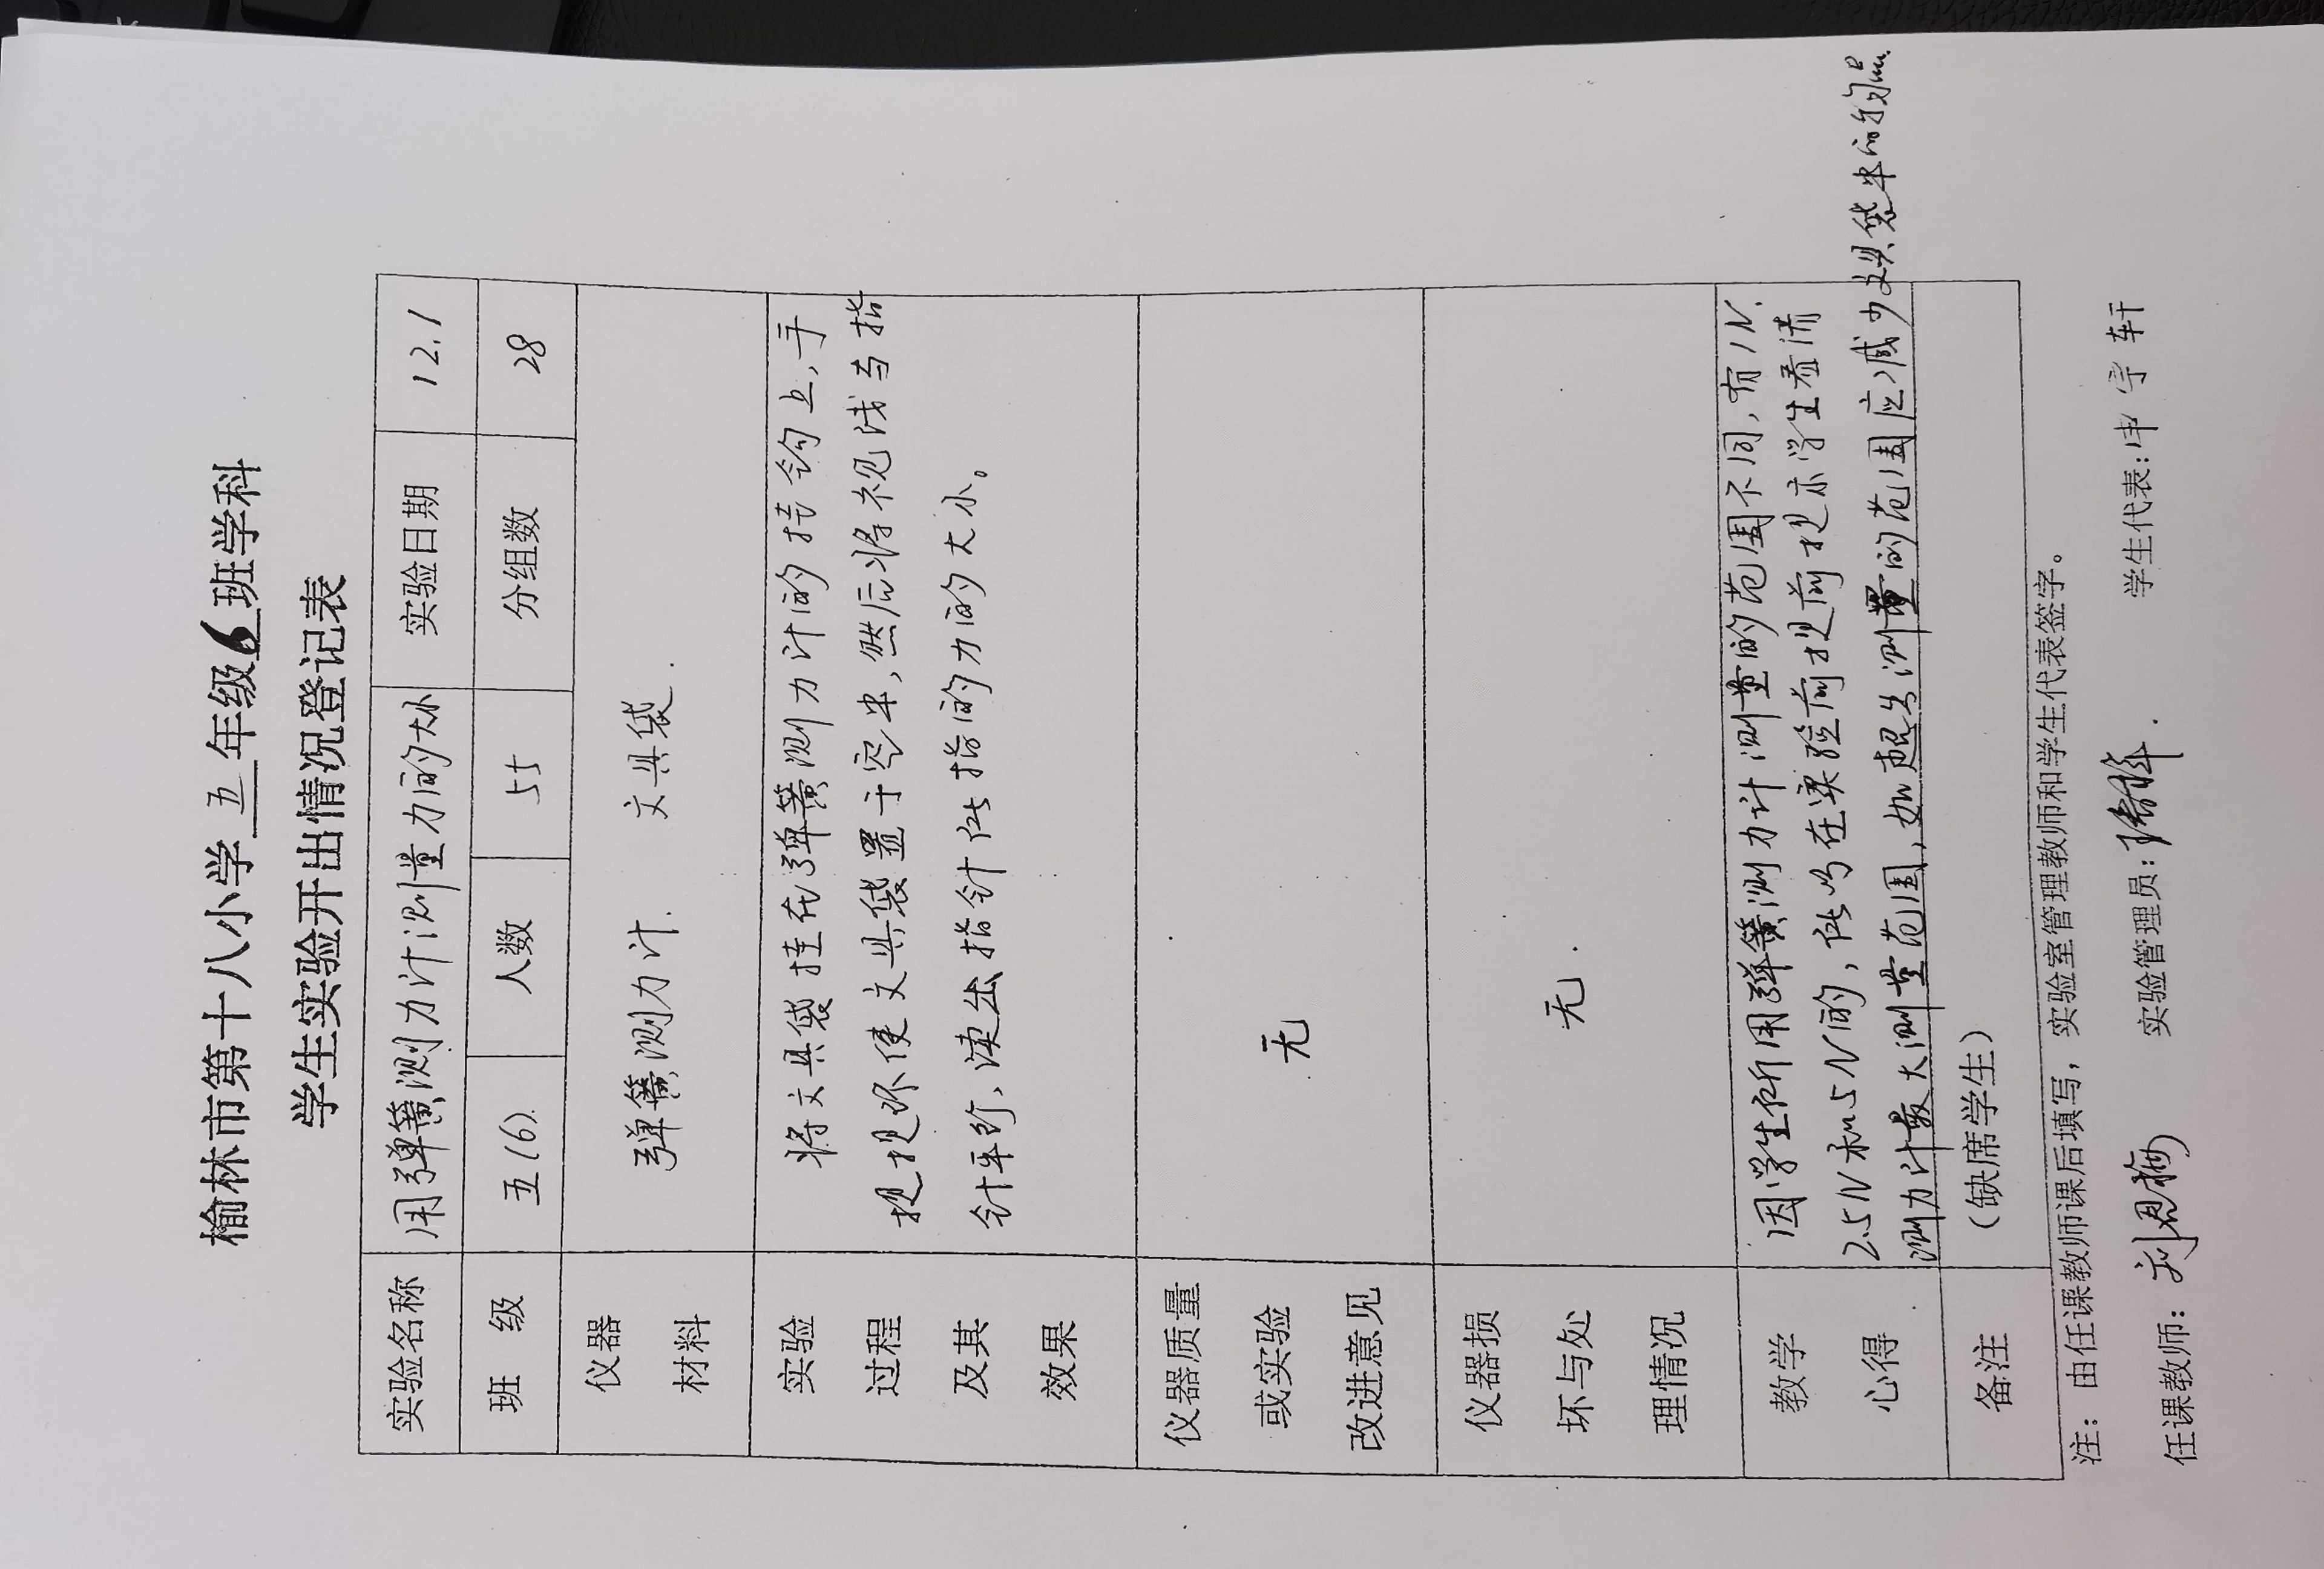 榆林市第十八小学 五 年级 6 班学科
学生实验开出情况登记表
实验名称 用弹簧测力计测量力的大小 实验日期 12.1
班 级 五(6). 人数 55 分组数 28
仪器
材料
弹簧测力计. 文具袋.
实验
过程
及其
效果
将文具袋挂在弹簧测力计的挂钩上,手
提提环使文具袋置于空中,然后将视线与指
针平行,读出指针所指的力的大小。
仪器质量
或实验
改进意见
无
仪器损
坏与处
理情况
无.
教学
心得
因学生所用弹簧测力计测量的范围不同,有1N.
2.5N和5N的,所以在实验前提前提示学生看清
测力计最大测量范围,如超出测量的范围应减少文具袋中的物品.
备注 (缺席学生)
注:由任课教师课后填写,实验室管理教师和学生代表签字。
任课教师:刘恩梅 实验管理员: 学生代表:申宇轩